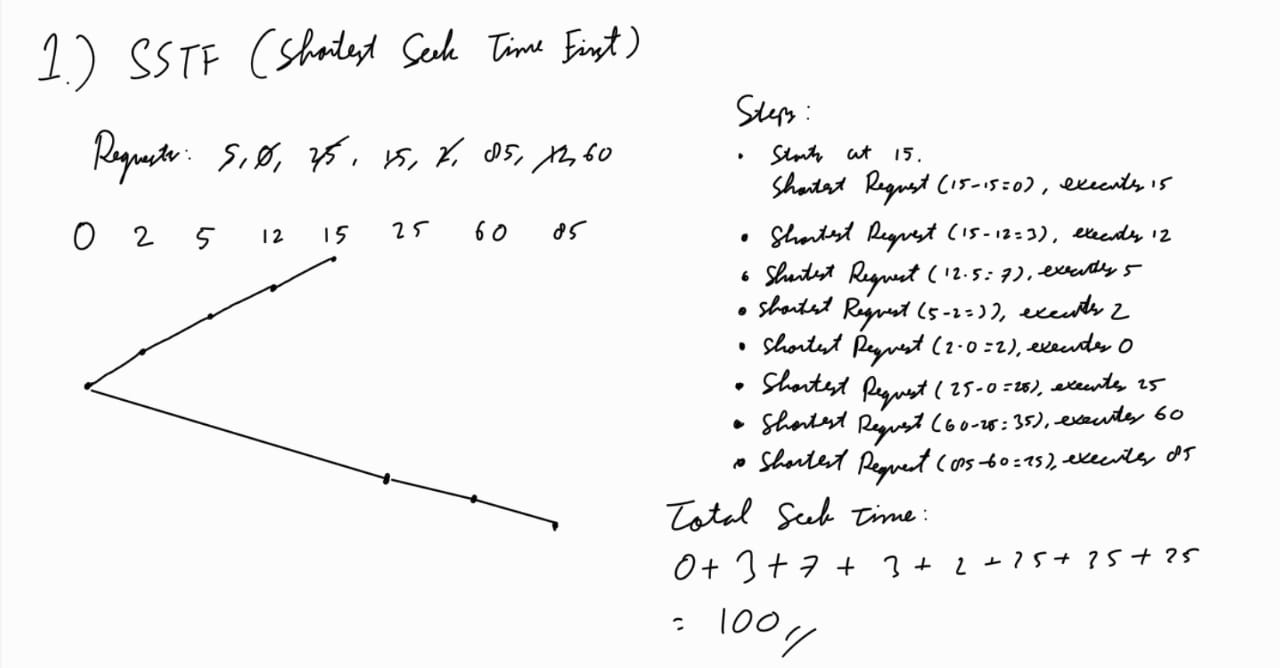 1.) SSTF (Shortest Seek Time First)
Requests: 5, 0, 25, 15, 2, 85, 12, 60
0 2 5 12 15 25 60 85
Steps:
• Starts at 15.
Shortest Request (15-15=0), executes 15
• Shortest Request (15-12=3), executes 12
• Shortest Request (12-5=7), executes 5
• Shortest Request (5-2=3), executes 2
• Shortest Request (2-0=2), executes 0
• Shortest Request (25-0=25), executes 25
• Shortest Request (60-25=35), executes 60
• Shortest Request (85-60=25), executes 85
Total Seek Time:
0+3+7+3+2+25+35+25
= 100//